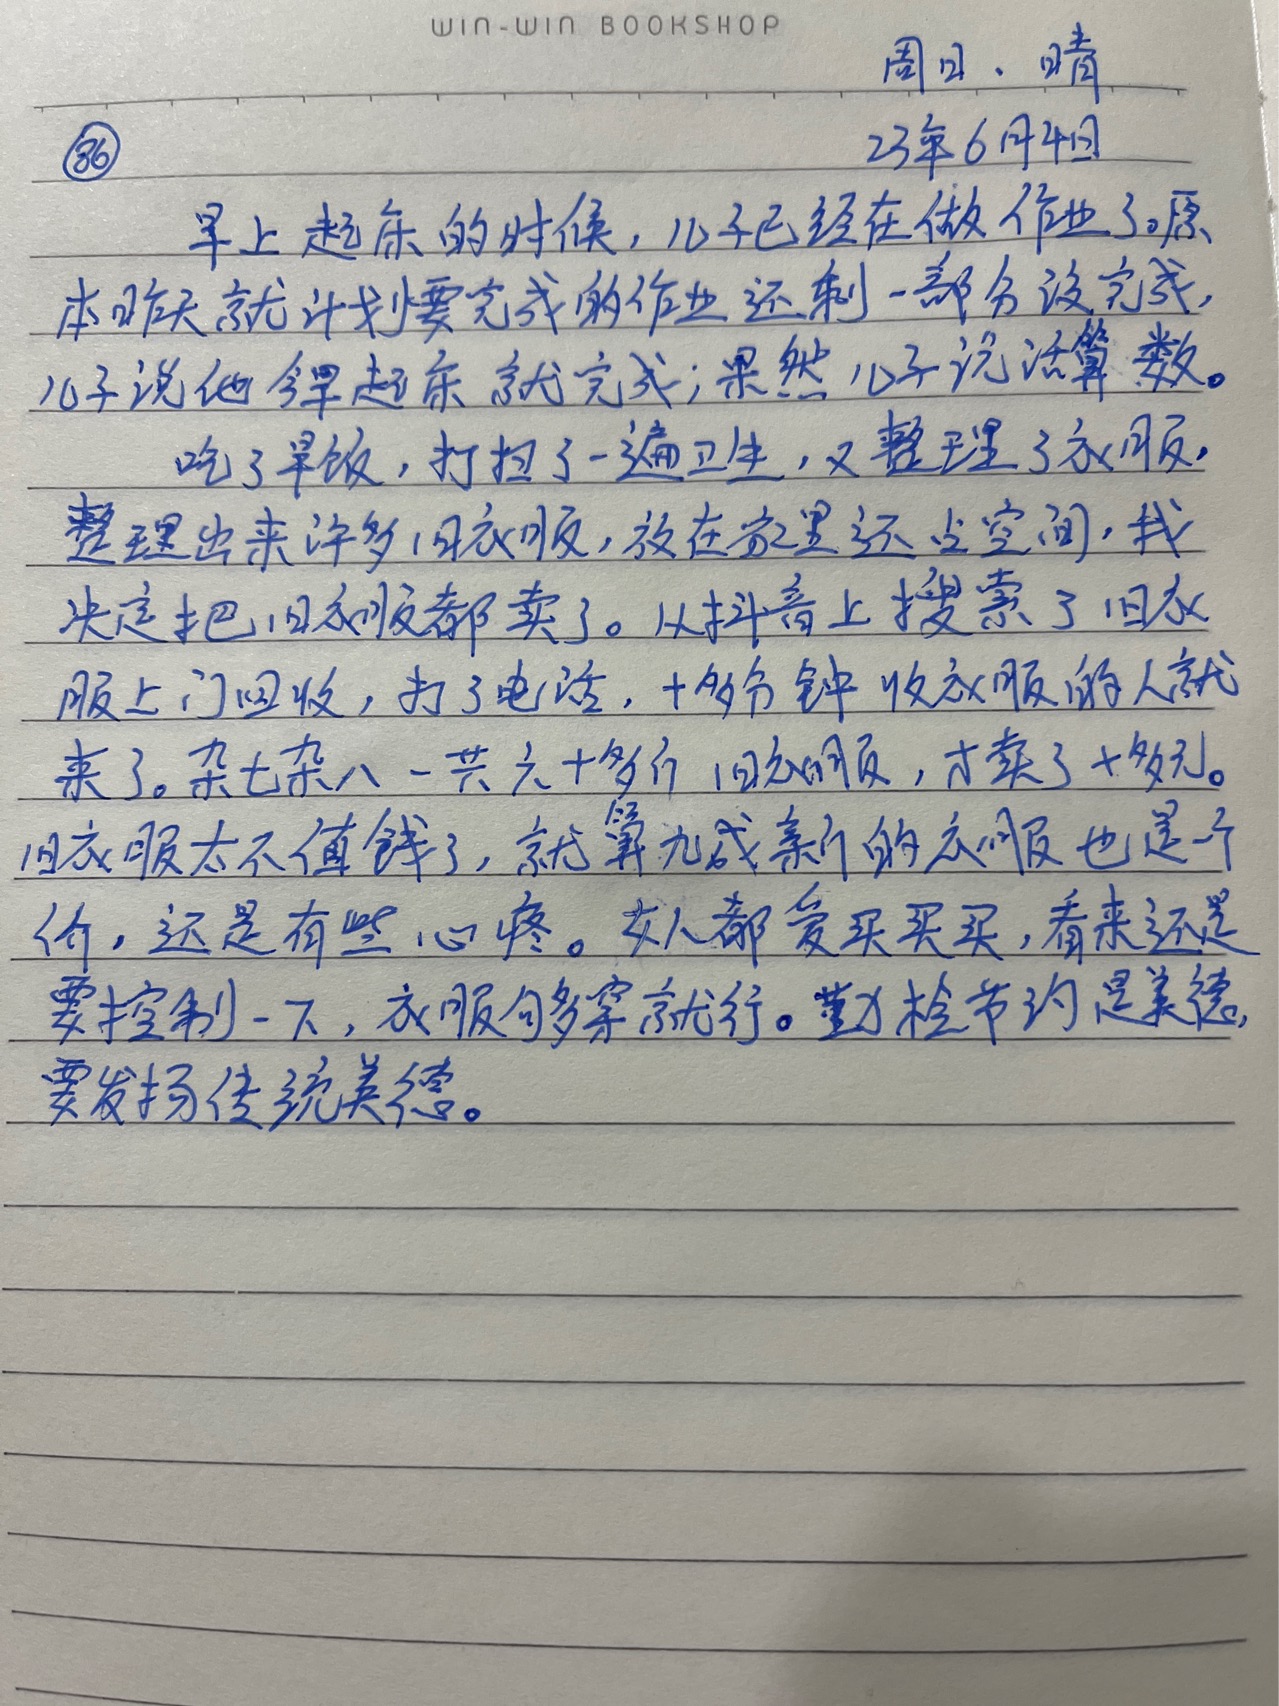 WIN-WIN BOOKSHOP
周日、晴
23年6月4日
86
早上起来的时候，儿子已经在做作业了。原
本昨天就计划要完成的作业还剩一部分没完成，
儿子说他今早起来就完成；果然儿子说话算数。
吃了早饭，打扫了一遍卫生，又整理了衣服，
整理出来许多旧衣服，放在家里还占空间，我
决定把旧衣服都卖了。从抖音上搜索了旧衣
服上门回收，打了电话，十多分钟收衣服的人就
来了。杂七杂八一共六十多斤旧衣服，才卖了十多元。
旧衣服太不值钱了，就算九成新的衣服也是一个
价，还是有些心疼。女人都爱买买买，看来还是
要控制一下，衣服够穿就行。勤俭节约是美德，
要发扬传统美德。